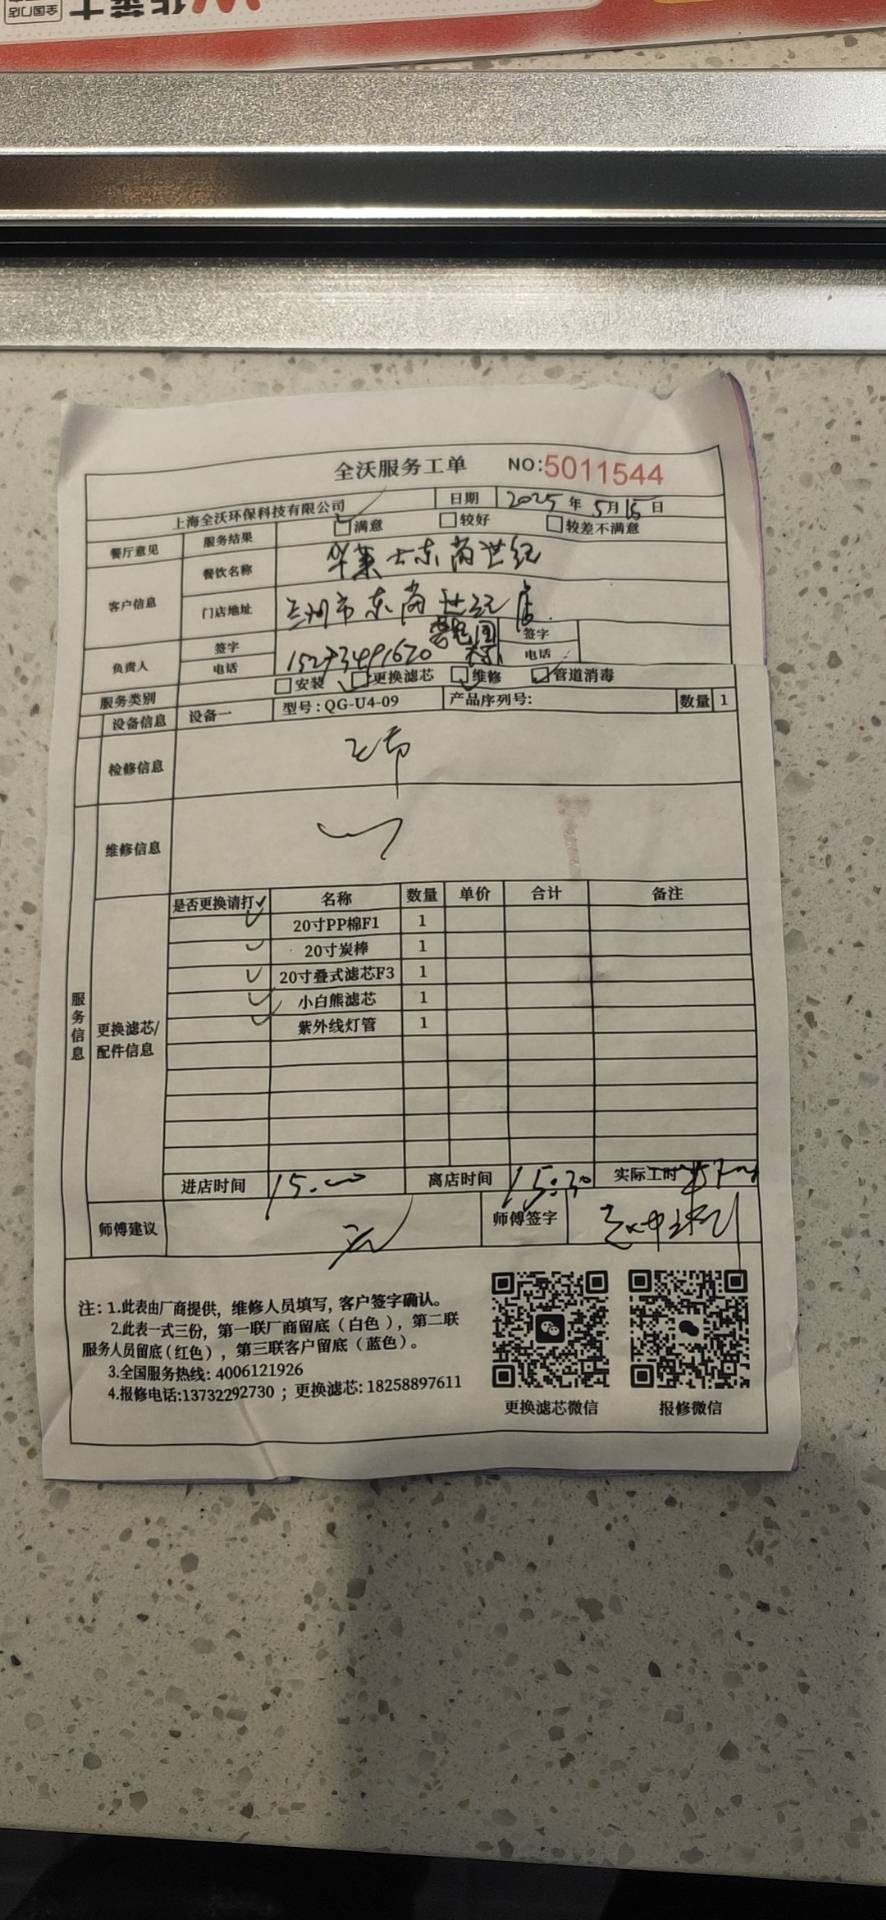 华莱士
全国门店
全沃服务工单 NO:5011544
上海全沃环保科技有限公司 日期 2025年5月15日
餐厅意见 服务结果 满意 较好 较差不满意
客户信息 餐饮名称 华莱士东尚世纪
门店地址 兰州市东尚世纪店
负责人 签字 签字
电话 电话
服务类别 安装 更换滤芯 维修 管道消毒
设备信息 设备一 型号:QG-U4-09 产品序列号: 数量 1
检修信息
维修信息
服务信息
更换滤芯/配件信息
是否更换请打✓ 名称 数量 单价 合计 备注
✓ 20寸PP棉F1 1
✓ 20寸炭棒 1
✓ 20寸叠式滤芯F3 1
✓ 小白熊滤芯 1
✓ 紫外线灯管 1
进店时间 15:00 离店时间 15:30 实际工时
师傅建议 无 师傅签字
注: 1.此表由厂商提供，维修人员填写，客户签字确认。
2.此表一式三份，第一联厂商留底（白色），第二联
服务人员留底（红色），第三联客户留底（蓝色）。
3.全国服务热线: 4006121926
4.报修电话:13732292730 ；更换滤芯: 18258897611
更换滤芯微信 报修微信